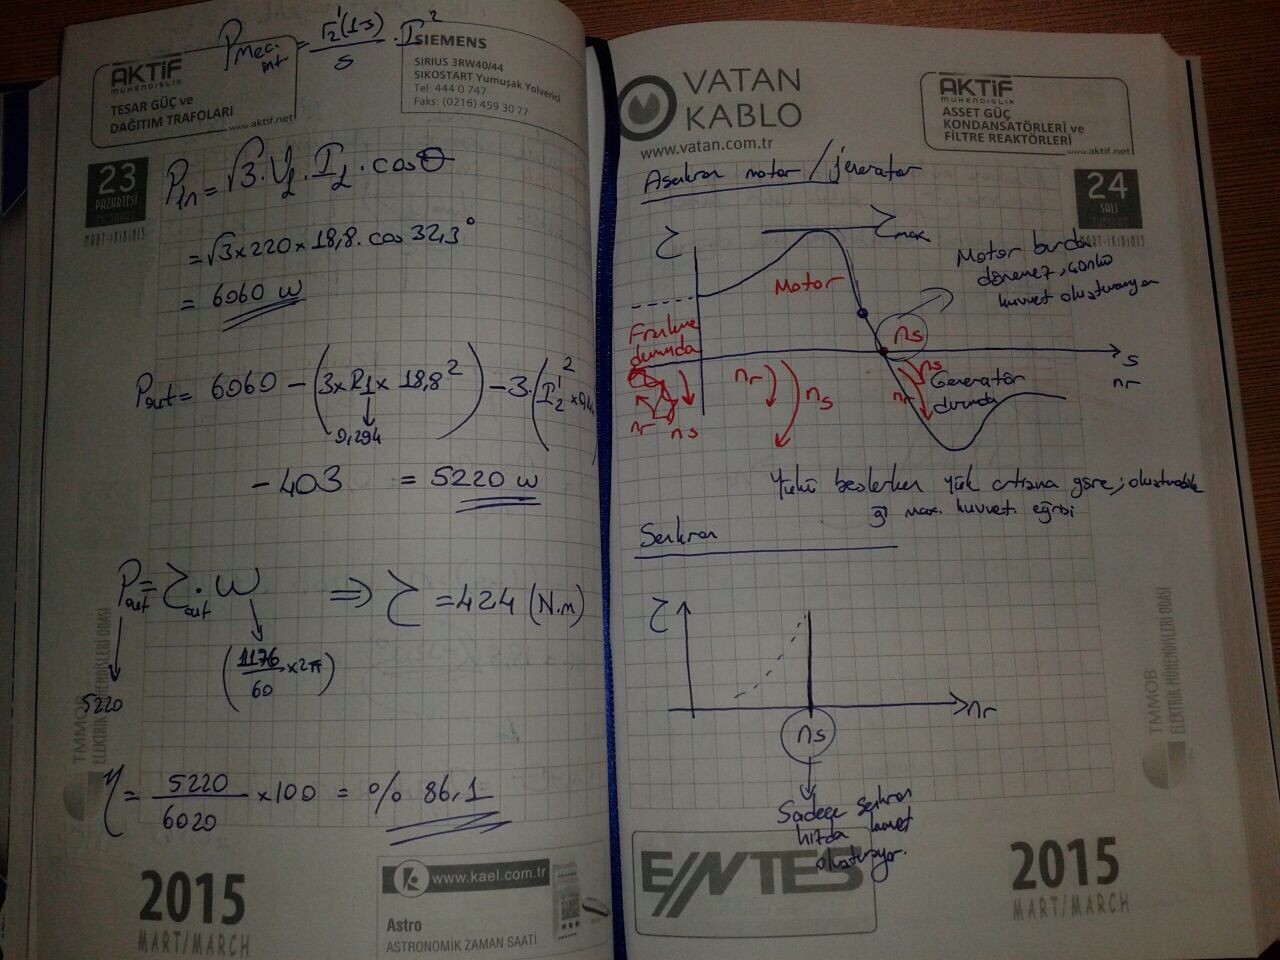 P_Mec. = r₂'(1-s)/s . I²
AKTiF
MÜHENDİSLİK
TESAR GÜÇ ve
DAĞITIM TRAFOLARI
www.aktif.net
SIEMENS
SIRIUS 3RW40/44
SIKOSTART Yumuşak Yolverici
Tel: 444 0 747
Faks: (0216) 459 30 77
23
PAZARTESİ
MART-İKİBİN15
Pın = √3.V₂.I₂.cosθ
= √3x220x18,8.cos32,3°
= 6060 w
Pout = 6060 - (3xR1x18,8²) - 3.(I₂'²x0,
0,294
- 403 = 5220 w
Pout = τout.ω ⇒ τ = 424 (N.m)
5220
(1176/60 x2π)
η = 5220/6020 x100 = % 86,1
TMMOB
ELEKTRİK MÜHENDİSLERİ ODASI
2015
MART/MARCH
www.kael.com.tr
Astro
ASTRONOMİK ZAMAN SAATİ
VATAN
KABLO
www.vatan.com.tr
AKTiF
MÜHENDİSLİK
ASSET GÜÇ
KONDANSATÖRLERİ ve
FİLTRE REAKTÖRLERİ
www.aktif.net
24
SALI
MART-İKİBİN15
Asenkron motor / jeneratör
τ
τmax
Motor burda
dönemez, çünkü
kuvvet oluşturamıyor
Motor
Frenleme
durumda
ns
nr
ns
nr
ns
s
nr
ns
nr
Generatör
durumda
Yükü beslerken yük artışına göre; oluşturabileceği
max. kuvvet. eğrisi
Senkron
τ
nr
ns
Sadece senkron
hızda kuvvet
oluşturuyor.
ENTES
2015
MART/MARCH
TMMOB
ELEKTRİK MÜHENDİSLERİ ODASI